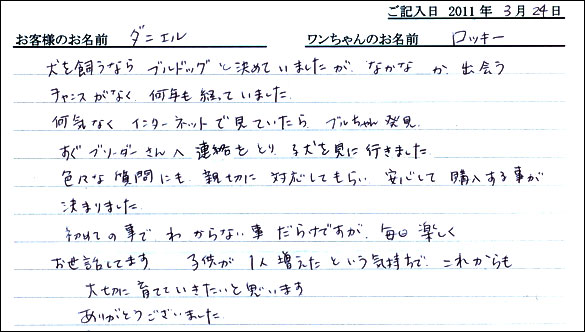 ご記入日 2011年 3月 24日
お客様のお名前 ダニエル ワンちゃんのお名前 ロッキー
犬を飼うなら ブルドッグ と決めていましたが、なかなか、出会う
チャンスがなく、何年も経っていました。
何気なく インターネットで見ていたら、ブルちゃん発見。
すぐブリーダーさんへ連絡をとり、子犬を見に行きました
色々な質問にも、親切に対応してもらい、安心して購入する事が
決まりました。
初めての事で、わからない事だらけですが、毎日楽しく
お世話してます。 子供が1人増えたという気持ちで、これからも
大切に育てていきたいと思います
ありがとうございました。